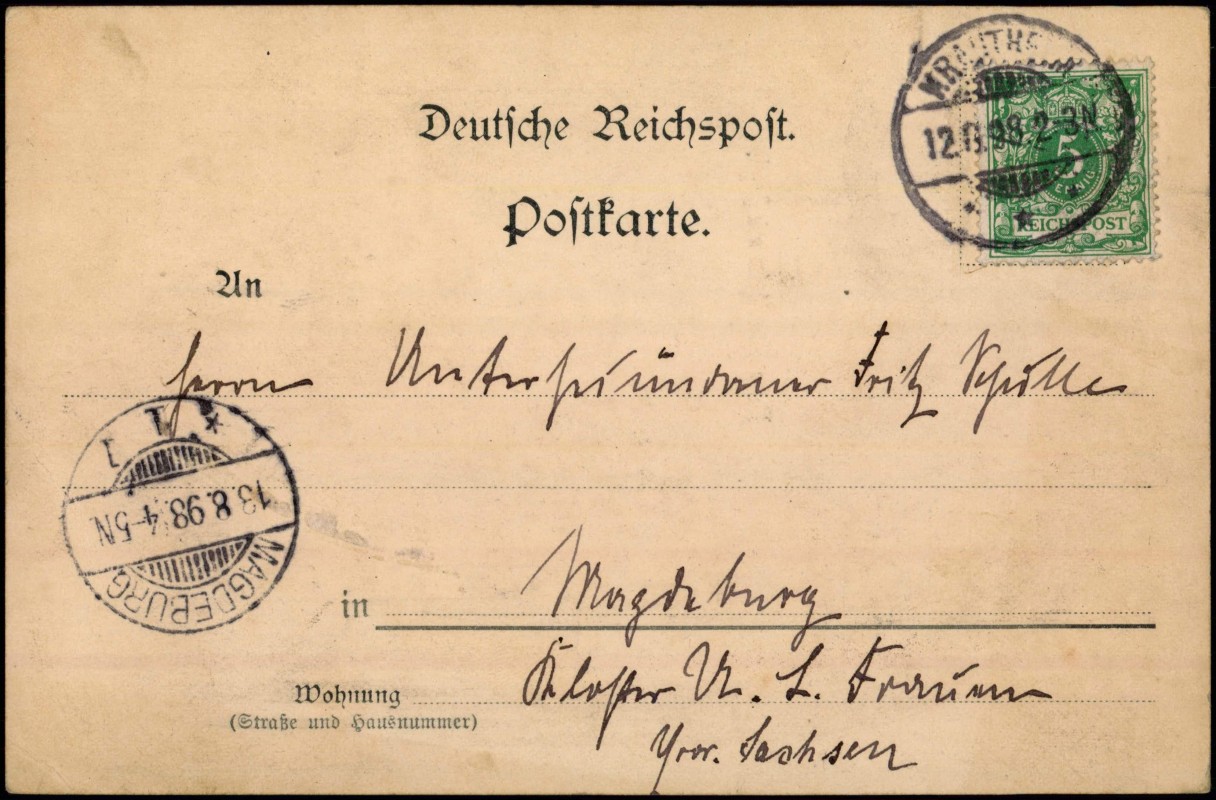 Deutsche Reichspost.
Postkarte.
KRAUTHE
12.8.98.2-3N.
5
PFENNIG
REICHSPOST
An
Herrn Untersekundaner Fritz Schulle
MAGDEBURG
13.8.98.4-5N.
1
in Magdeburg
Wohnung Kloster U. L. Frauen
(Straße und Hausnummer)
Prov. Sachsen